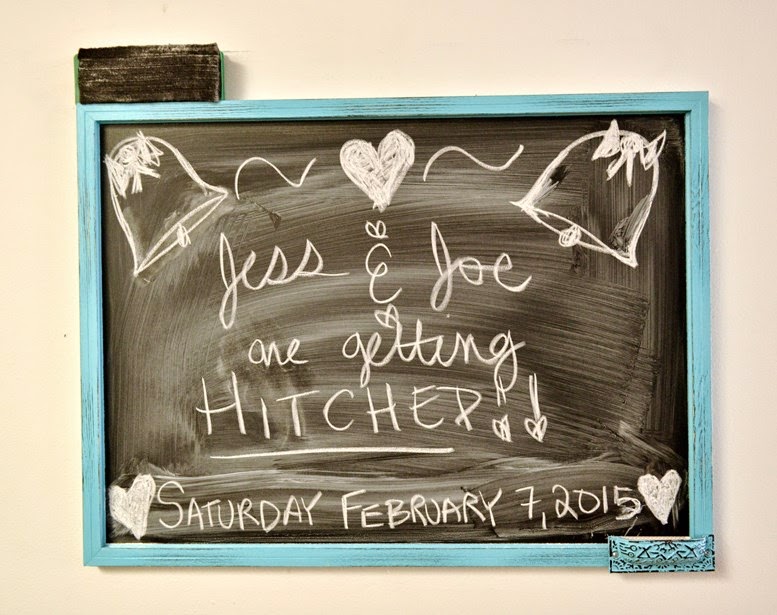 Jess & Joe
are getting
HITCHED!!
SATURDAY FEBRUARY 7, 2015